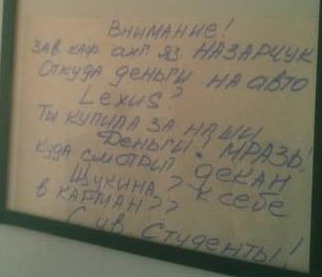 ВНИМАНИЕ!
ЗАВ КАФ АНГ ЯЗ. НАЗАРЧУК
ОТКУДА ДЕНЬГИ НА АВТО
Lexus?
ТЫ КУПИЛА ЗА НАШИ
ДЕНЬГИ! МРАЗЬ!
КУДА СМОТРИТ ДЕКАН
ЩУКИНА? К СЕБЕ
В КАРМАН??
С ув. СТУДЕНТЫ!